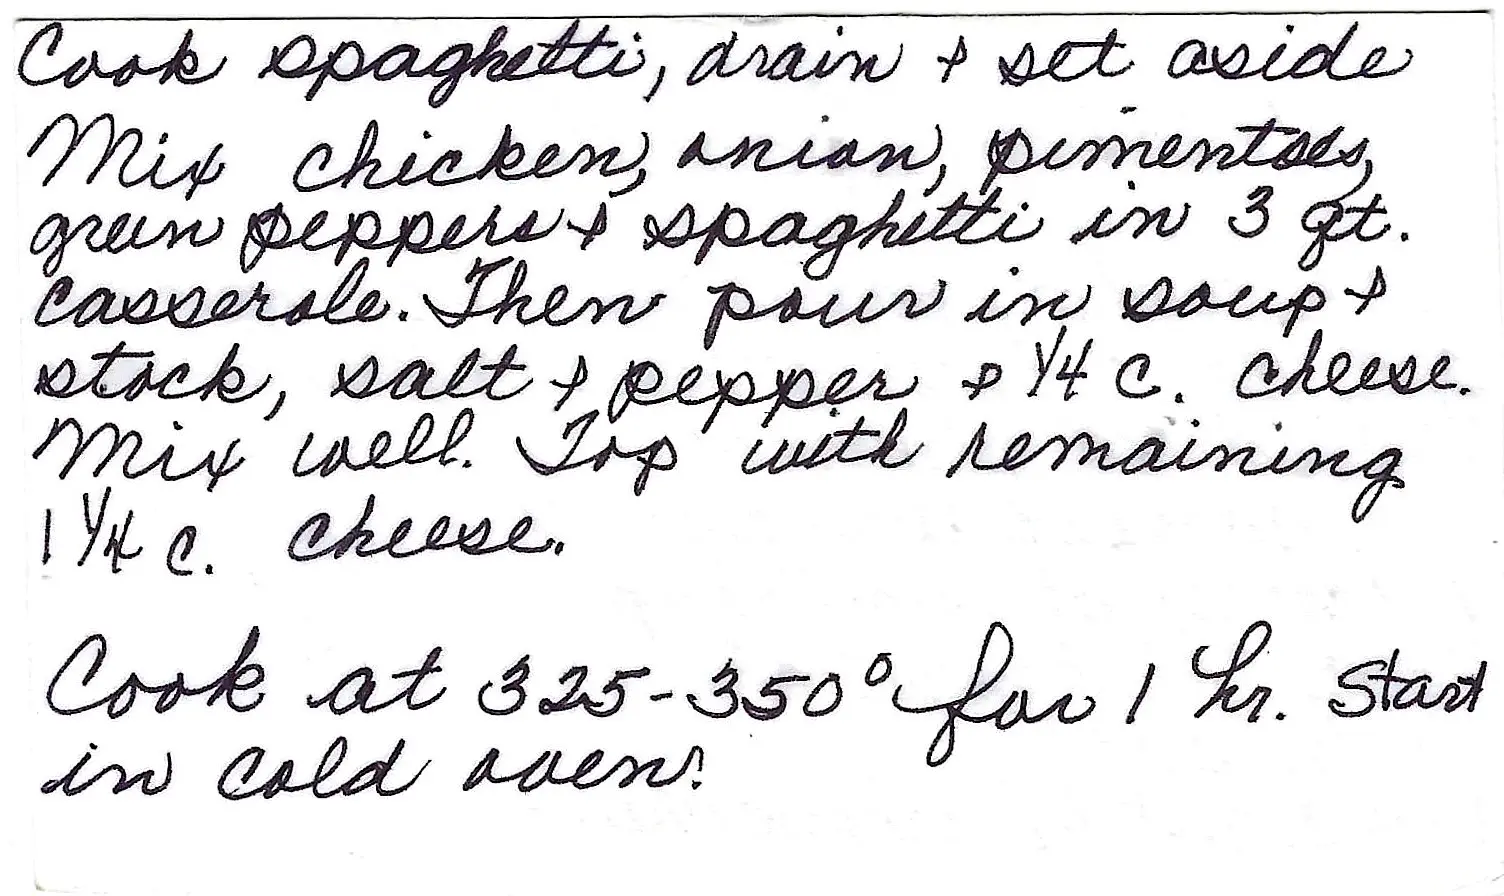 Cook spaghetti, drain + set aside
Mix chicken, onion, pimentoes,
green peppers + spaghetti in 3 qt.
casserole. Then pour in soup +
stock, salt + pepper + 1/4 c. cheese.
Mix well. Top with remaining
1 1/4 c. cheese.
Cook at 325-350° for 1 hr. Start
in cold oven!